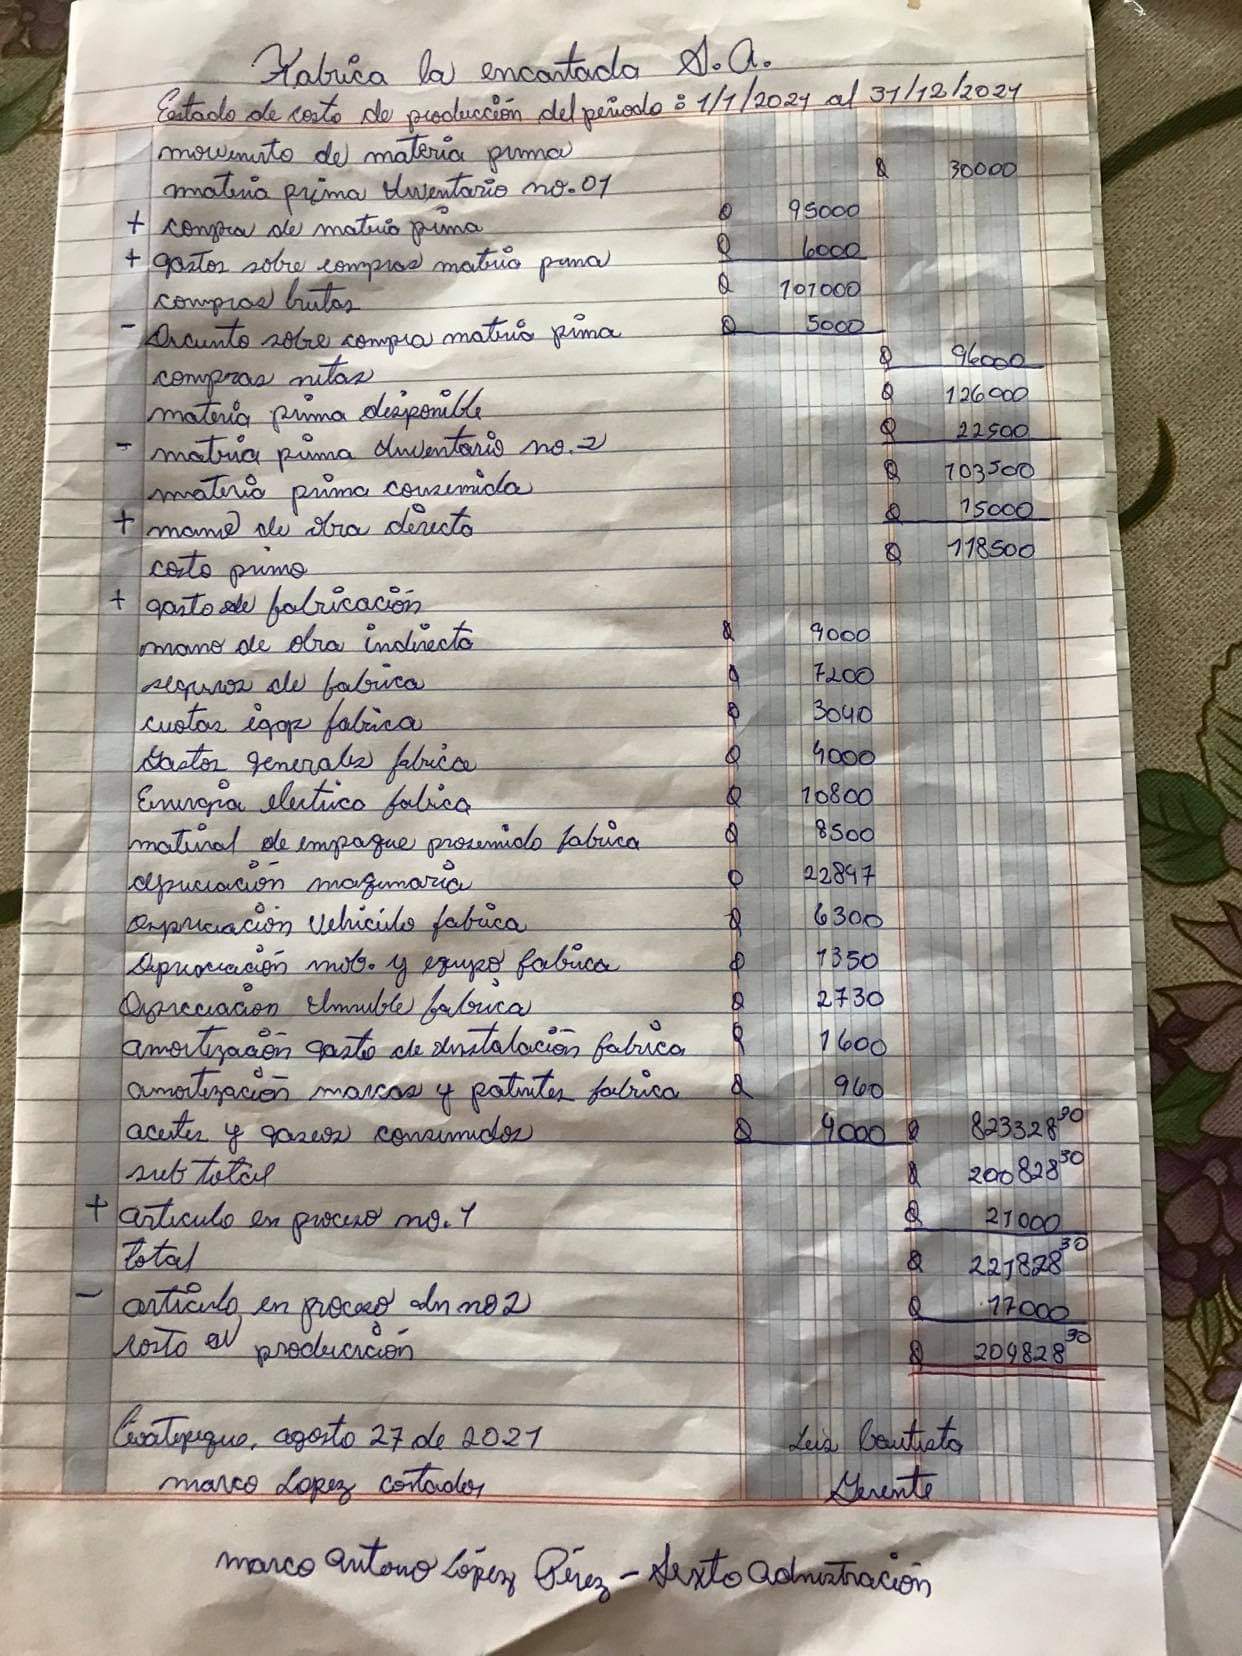 Fabrica la encantada S.A.
Estado de costo de producción del periodo: 1/1/2021 al 31/12/2021
movimiento de materia prima
materia prima Inventario no.01 Q 30000
+ compra de materia prima Q 95000
+ gastos sobre compras materia prima Q 6000
compras brutas Q 101000
- Descuento sobre compra materia prima Q 5000
compras netas Q 96000
materia prima disponible Q 126000
- materia prima Inventario no.2 Q 22500
materia prima consumida Q 103500
+ mano de obra directo Q 15000
costo primo Q 118500
+ gasto de fabricación
mano de obra indirecta Q 9000
seguros de fabrica Q 7200
cuotas igss fabrica Q 3040
Gastos generales fabrica Q 4000
Energia electrica fabrica Q 10800
material de empaque prosumido fabrica Q 8500
depreciación maquinaria Q 22897
Depreciación vehiculo fabrica Q 6300
Depreciación mob. y equipo fabrica Q 1350
Depreciación Inmuble fabrica Q 2730
amortización gasto de Instalación fabrica Q 1600
amortización marcas y patentes fabrica Q 960
aceites y gaseos consumidos Q 4000 Q 82332830
sub total Q 20082830
+ articulo en proceso no.1 Q 21000
Total Q 22182830
- articulo en proceso in no 2 Q 17000
costo de producción Q 20482830
Coatepeque, agosto 27 de 2021 Luis Bautista
marco Lopez contador Gerente
marco antonio López Pérez - Sexto administración